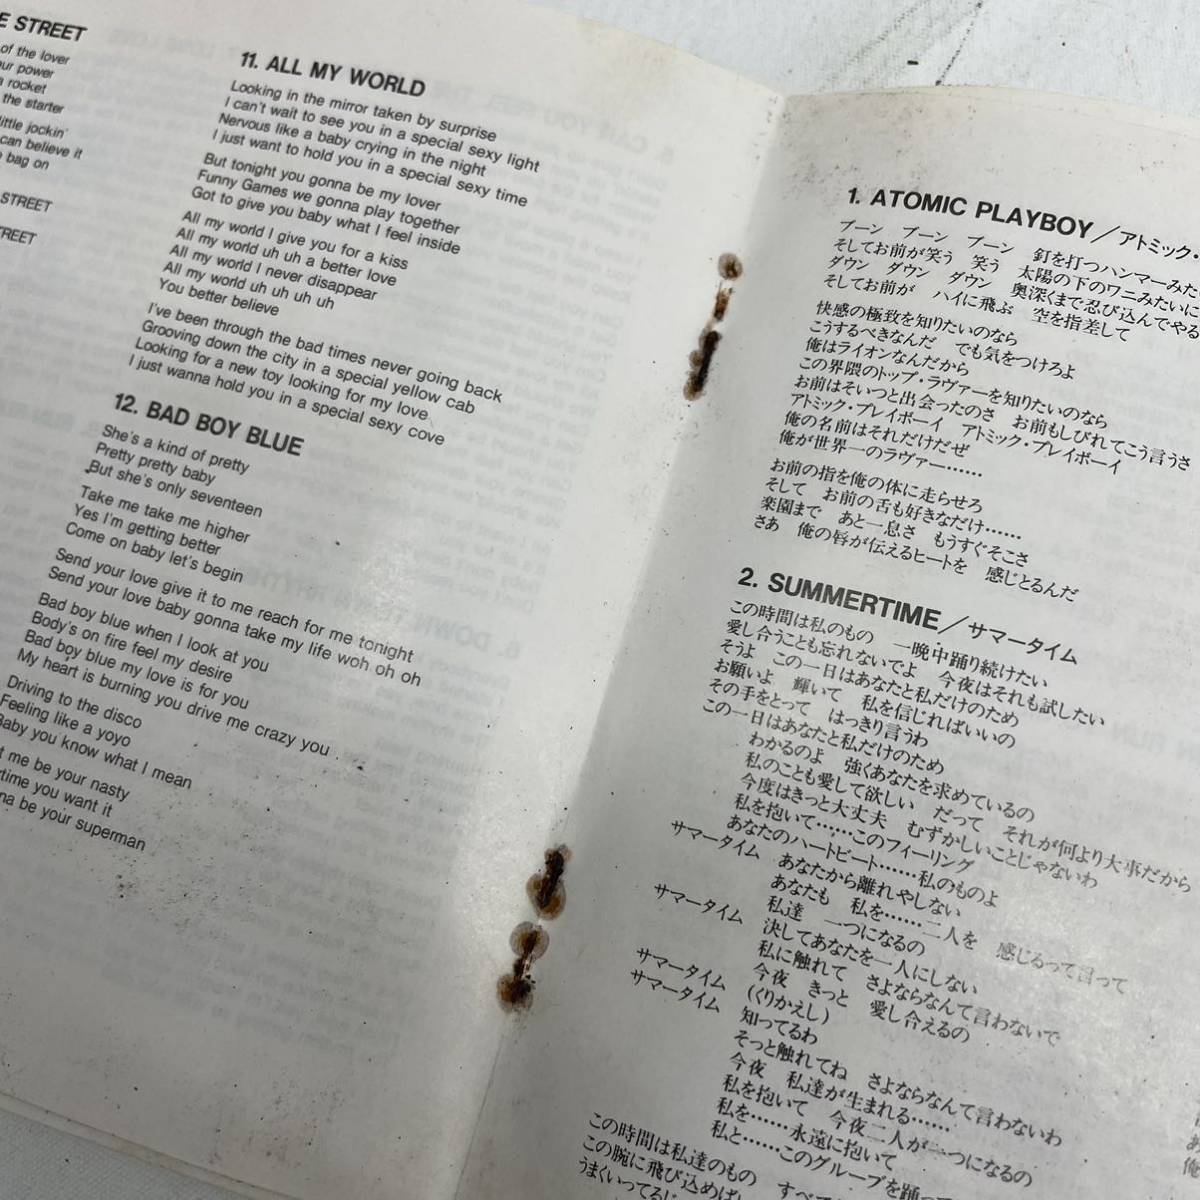 E STREET
of the lover
our power
a rocket
the starter
little jockin'
can believe it
bag on
STREET
STREET
11. ALL MY WORLD
Looking in the mirror taken by surprise
I can't wait to see you in a special sexy light
Nervous like a baby crying in the night
I just want to hold you in a special sexy time
But tonight you gonna be my lover
Funny Games we gonna play together
Got to give you baby what I feel inside
All my world I give you for a kiss
All my world uh uh a better love
All my world I never disappear
All my world uh uh uh uh
You better believe
I've been through the bad times never going back
Grooving down the city in a special yellow cab
Looking for a new toy looking for my love
I just wanna hold you in a special sexy cove
12. BAD BOY BLUE
She's a kind of pretty
Pretty pretty baby
But she's only seventeen
Take me take me higher
Yes I'm getting better
Come on baby let's begin
Send your love give it to me reach for me tonight
Send your love baby gonna take my life woh oh oh
Bad boy blue when I look at you
Body's on fire feel my desire
Bad boy blue my love is for you
My heart is burning you drive me crazy you
Driving to the disco
Feeling like a yoyo
Baby you know what I mean
t me be your nasty
rtime you want it
na be your superman
1. ATOMIC PLAYBOY／アトミック・
ブーン ブーン ブーン 釘を打つハンマーみた
そしてお前が笑う 笑う 太陽の下のワニみたいに
ダウン ダウン ダウン 奥深くまで忍び込んでやる
そしてお前が ハイに飛ぶ 空を指差して
快感の極致を知りたいのなら
こうするべきなんだ でも気をつけろよ
俺はライオンなんだから
この界隈のトップ・ラヴァーを知りたいのなら
お前はそいつと出会ったのさ お前もしびれてこう言うさ
アトミック・プレイボーイ アトミック・プレイボーイ
俺の名前はそれだけだぜ
俺が世界一のラヴァー……
お前の指を俺の体に走らせろ
そして お前の舌も好きなだけ……
楽園まで あと一息さ もうすぐそこさ
さあ 俺の唇が伝えるヒートを 感じとるんだ
2. SUMMERTIME／サマータイム
この時間は私のもの 一晩中踊り続けたい
愛し合うことも忘れないでよ 今夜はそれも試したい
そうよ この一日はあなたと私だけのため
お願いよ 輝いて 私を信じればいいの
その手をとって はっきり言うわ
この一日はあなたと私だけのため
わかるのよ 強くあなたを求めているの
私のことも愛して欲しい だって それが何より大事だから
今度はきっと大丈夫 むずかしいことじゃないわ
私を抱いて……このフィーリング
あなたのハートビート……私のものよ
サマータイム あなたから離れやしない
あなたも 私を……二人を 感じるって言って
サマータイム 私達 一つになるの
決してあなたを一人にしない
私に触れて さよならなんて言わないで
サマータイム 今夜 きっと 愛し合えるの
サマータイム (くりかえし)
知ってるわ
そっと触れてね さよならなんて言わないわ
今夜 私達が生まれる……
私を抱いて 今夜二人が一つになるの
私を……永遠に抱いて
私と……このグループを踊って
この時間は私達のもの すべて
この腕に飛び込めば
うまくいってるし